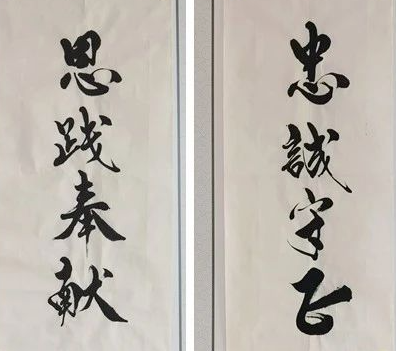 忠誠守正
思践奉献